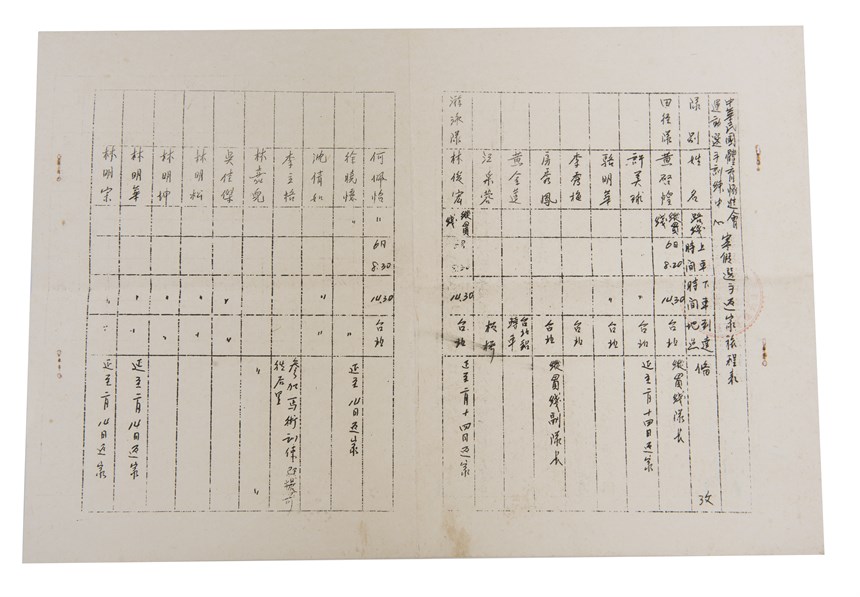 中華民國體育協進會
運動選手訓練中心 寒假選手返家旅程表
隊別 姓名 路線 上車時間 下車時間 到達地點 備攷
田徑隊 黃啓煌 縱貫線 6日8.30 14.30 台北 縱貫線隊長
許美珠 〃 台北 延至二月十四日返家
駱明華 〃 台北
李秀梅 台北
房秀鳳 台北 縱貫線副隊長
黃金蓮 台北
汪采蓉 板橋
游泳隊 林俊宏 縱貫線 8.30 14.30 台北 延至二月十四日返家
何佩怡 〃 6日8.30 14.30 台北
徐曉憶 〃 〃 延至14日返家
沈倩如 〃 〃
李立揚 參加馬術訓練
林嘉宛 〃 〃
吳佳傑 〃 〃
林明松 〃 〃
林明坤 〃 〃
林明華 〃 〃 延至二月14日返家
林明宗 〃 〃 延至二月14日返家